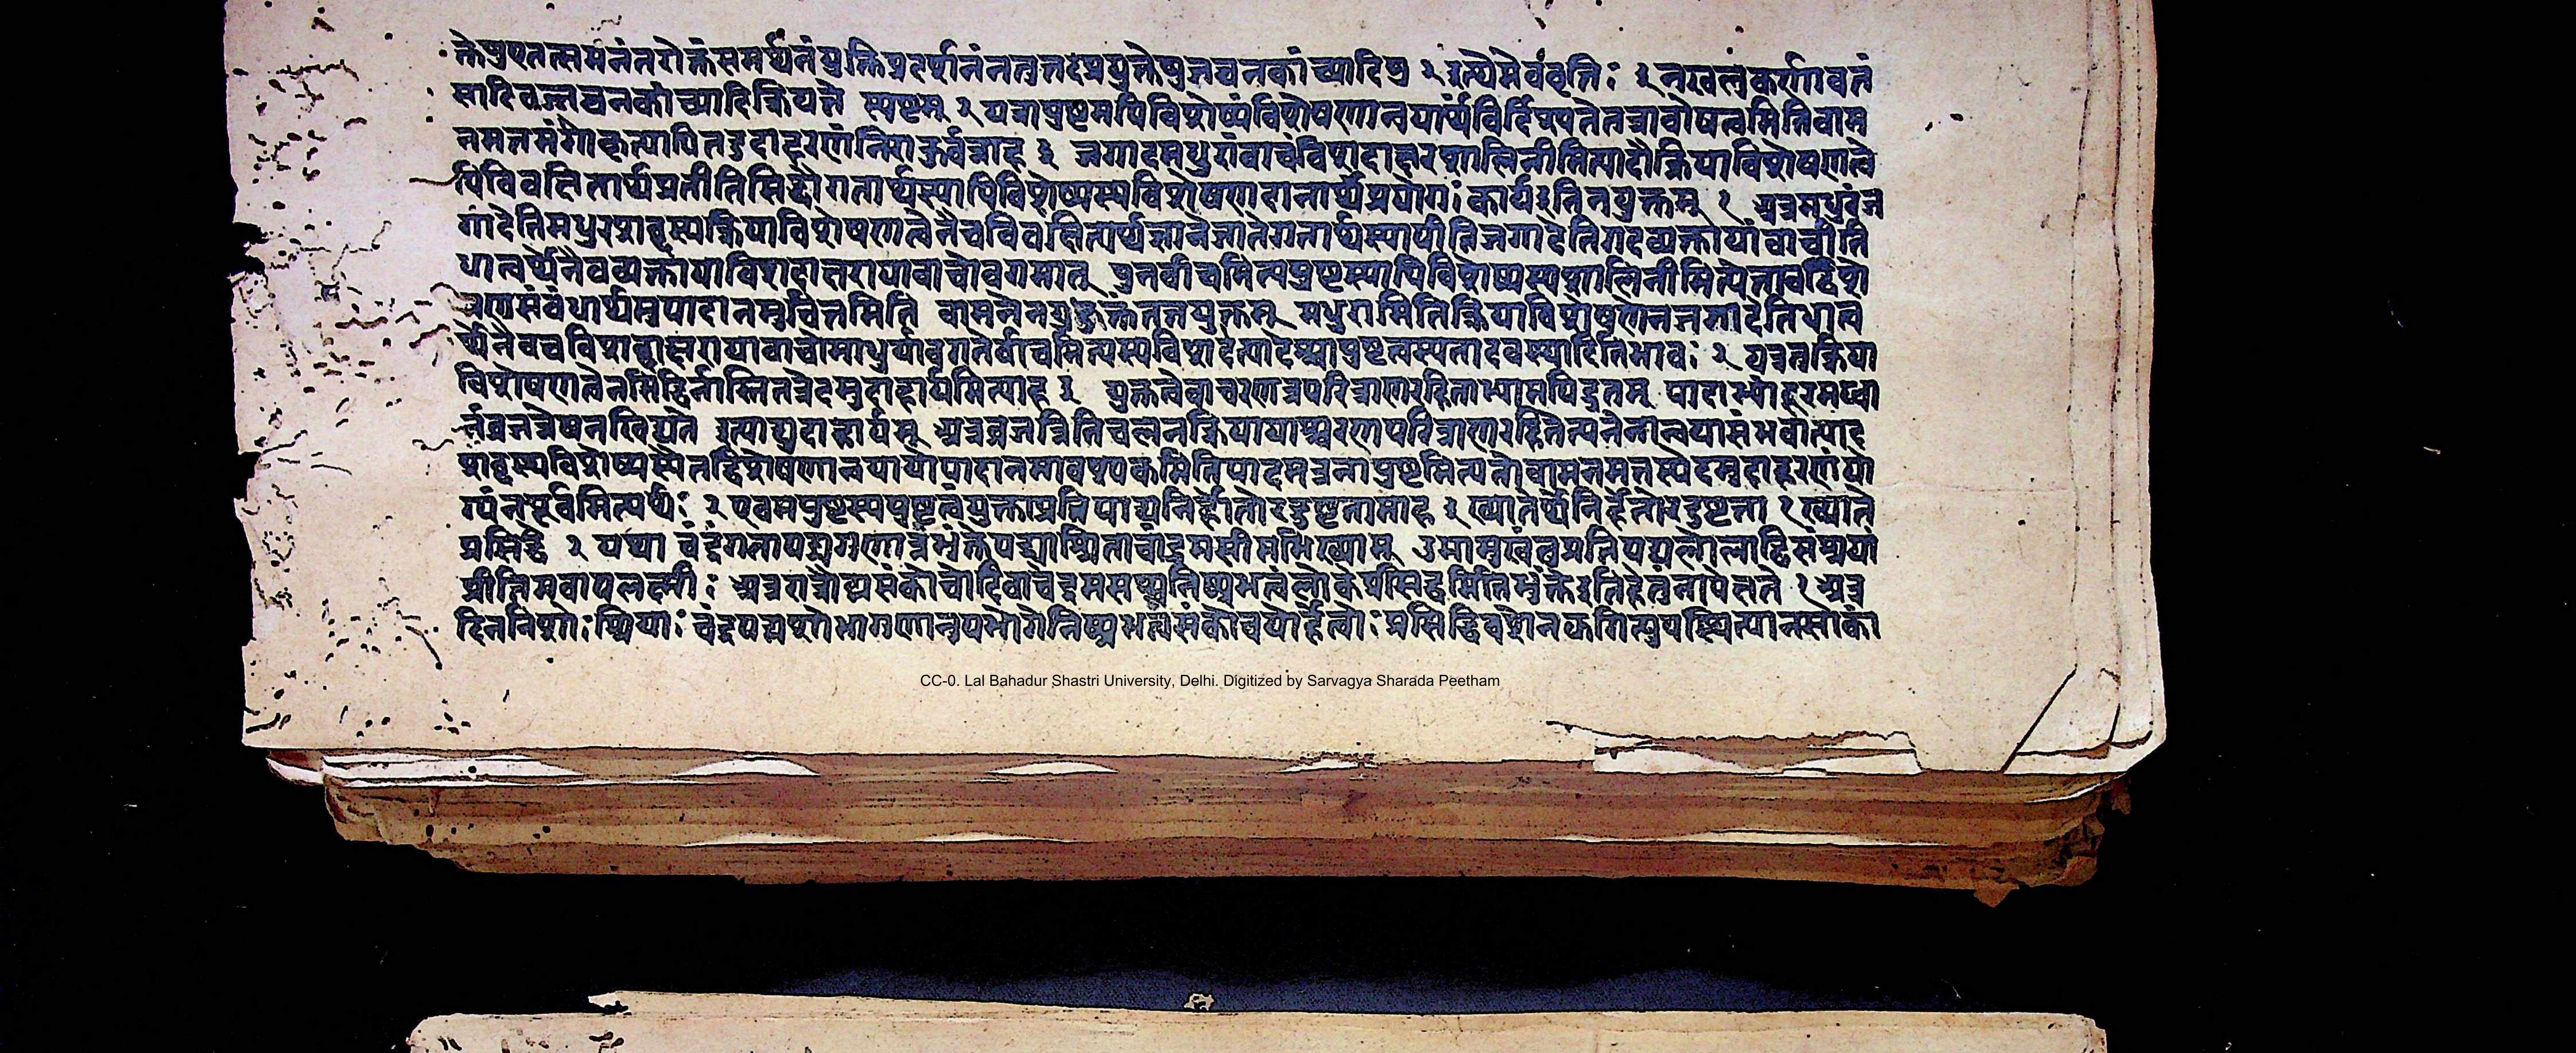 क्तेषुएतत्समनंतरोक्तंसमर्थनंयुक्तिप्रदर्शनंनत्वत्तदेप्रयुक्तेषुजघनकांच्यादिषु २ इत्येमेवंवृत्तिः ३ नखलुकर्णावतं
सादिवज्जघनकांच्यादिक्रियते स्पष्टम् २ यत्रापुष्टमपिविशेष्यंविशेषणान्वयार्थंविर्दिश्यतेतत्रादोषत्वमितिवाम
नमतमंगीकृत्यापितदुदाहरणंनिराकुर्वन्नाह ३ जगादमधुरांवाचंविशदाक्षरशालिनीमित्यादौक्रियाविशेषणत्वे
पिविवक्षितार्थप्रतीतिसिद्धौगतार्थस्यापिविशेष्यस्यविशेषणदानार्थंप्रयोगः कार्यइतिनयुक्तम् १ अत्रमधुरंज
गादेतिमधुरशब्दस्यक्रियाविशेषणत्वेनैवविवक्षितार्थज्ञानेजातेगतार्थस्यापीतिजगादेतिगदव्यक्तायांवाचीति
धात्वर्थेनैवव्यक्तायाविशदाक्षरायावाचोवगमात् पुनर्वाचमित्यपुष्टस्यापिविशेष्यस्यशालिनीमित्येतावद्विशे
षणसंबंधार्थमुपादानमुचितमिति वामनेनयदुक्तंतन्नयुक्तम् मधुरामितिक्रियाविशेषणेनजगादेतिधात्व
र्थेनैवचविशदाक्षरायावाचोमाधुर्यावगतेर्वाचमित्यस्यविशदेत्यादेश्चापुष्टत्वस्यतादवस्थ्यादितिभावः २ यत्रतुक्रिया
विशेषणत्वेनसिद्धिर्नास्तितत्रेदमुदाहार्यमित्याह ३ युक्तत्वेवाचरणत्रपरित्राणरहिताभ्यामपिद्रुतम् पादाभ्यांदूरमध्वा
नंव्रजन्नेषनखिद्यते इत्याद्युदाहार्यम् अत्रव्रजन्नितिचलनक्रियायाश्चरणपरित्राणरहितेत्यनेनान्वयासंभवात्पाद
शब्दस्यविशेष्यस्यैतद्विशेषणान्वयायोपादानमावश्यकमितिपादमत्रनापुष्टमित्यतोवामनमतस्येदमुदाहरणंयो
ग्यंनपूर्वमित्यर्थः २ एवमपुष्टस्यपुष्टत्वंयुक्त्याप्रतिपाद्यनिर्हेतोरदुष्टतामाह ३ ख्यातेर्थेनिर्हेतोरदुष्टता १ ख्याते
प्रसिद्धे २ यथा चंद्रंगतापद्मगुणान्नभुंक्तेपद्माश्रिताचांद्रमसीमभिख्याम् उमामुखंतुप्रतिपद्यलोलाद्विसंश्रयां
प्रीतिमवापलक्ष्मीः अत्ररात्रौपद्मसंकोचोदिवाचंद्रमसश्चनिष्प्रभत्वंलोकेप्रसिद्धमितिनभुंक्तेइतिहेतुंनापेक्षते १ अत्र
दिननिशोः श्रियाः चंद्रपद्मशोभागुणानुपभोगेनिष्प्रभत्वसंकोचयोर्हेत्वोः प्रसिद्धिवशेनझगित्युपस्थित्यानसाकां
CC-0. Lal Bahadur Shastri University, Delhi. Digitized by Sarvagya Sharada Peetham